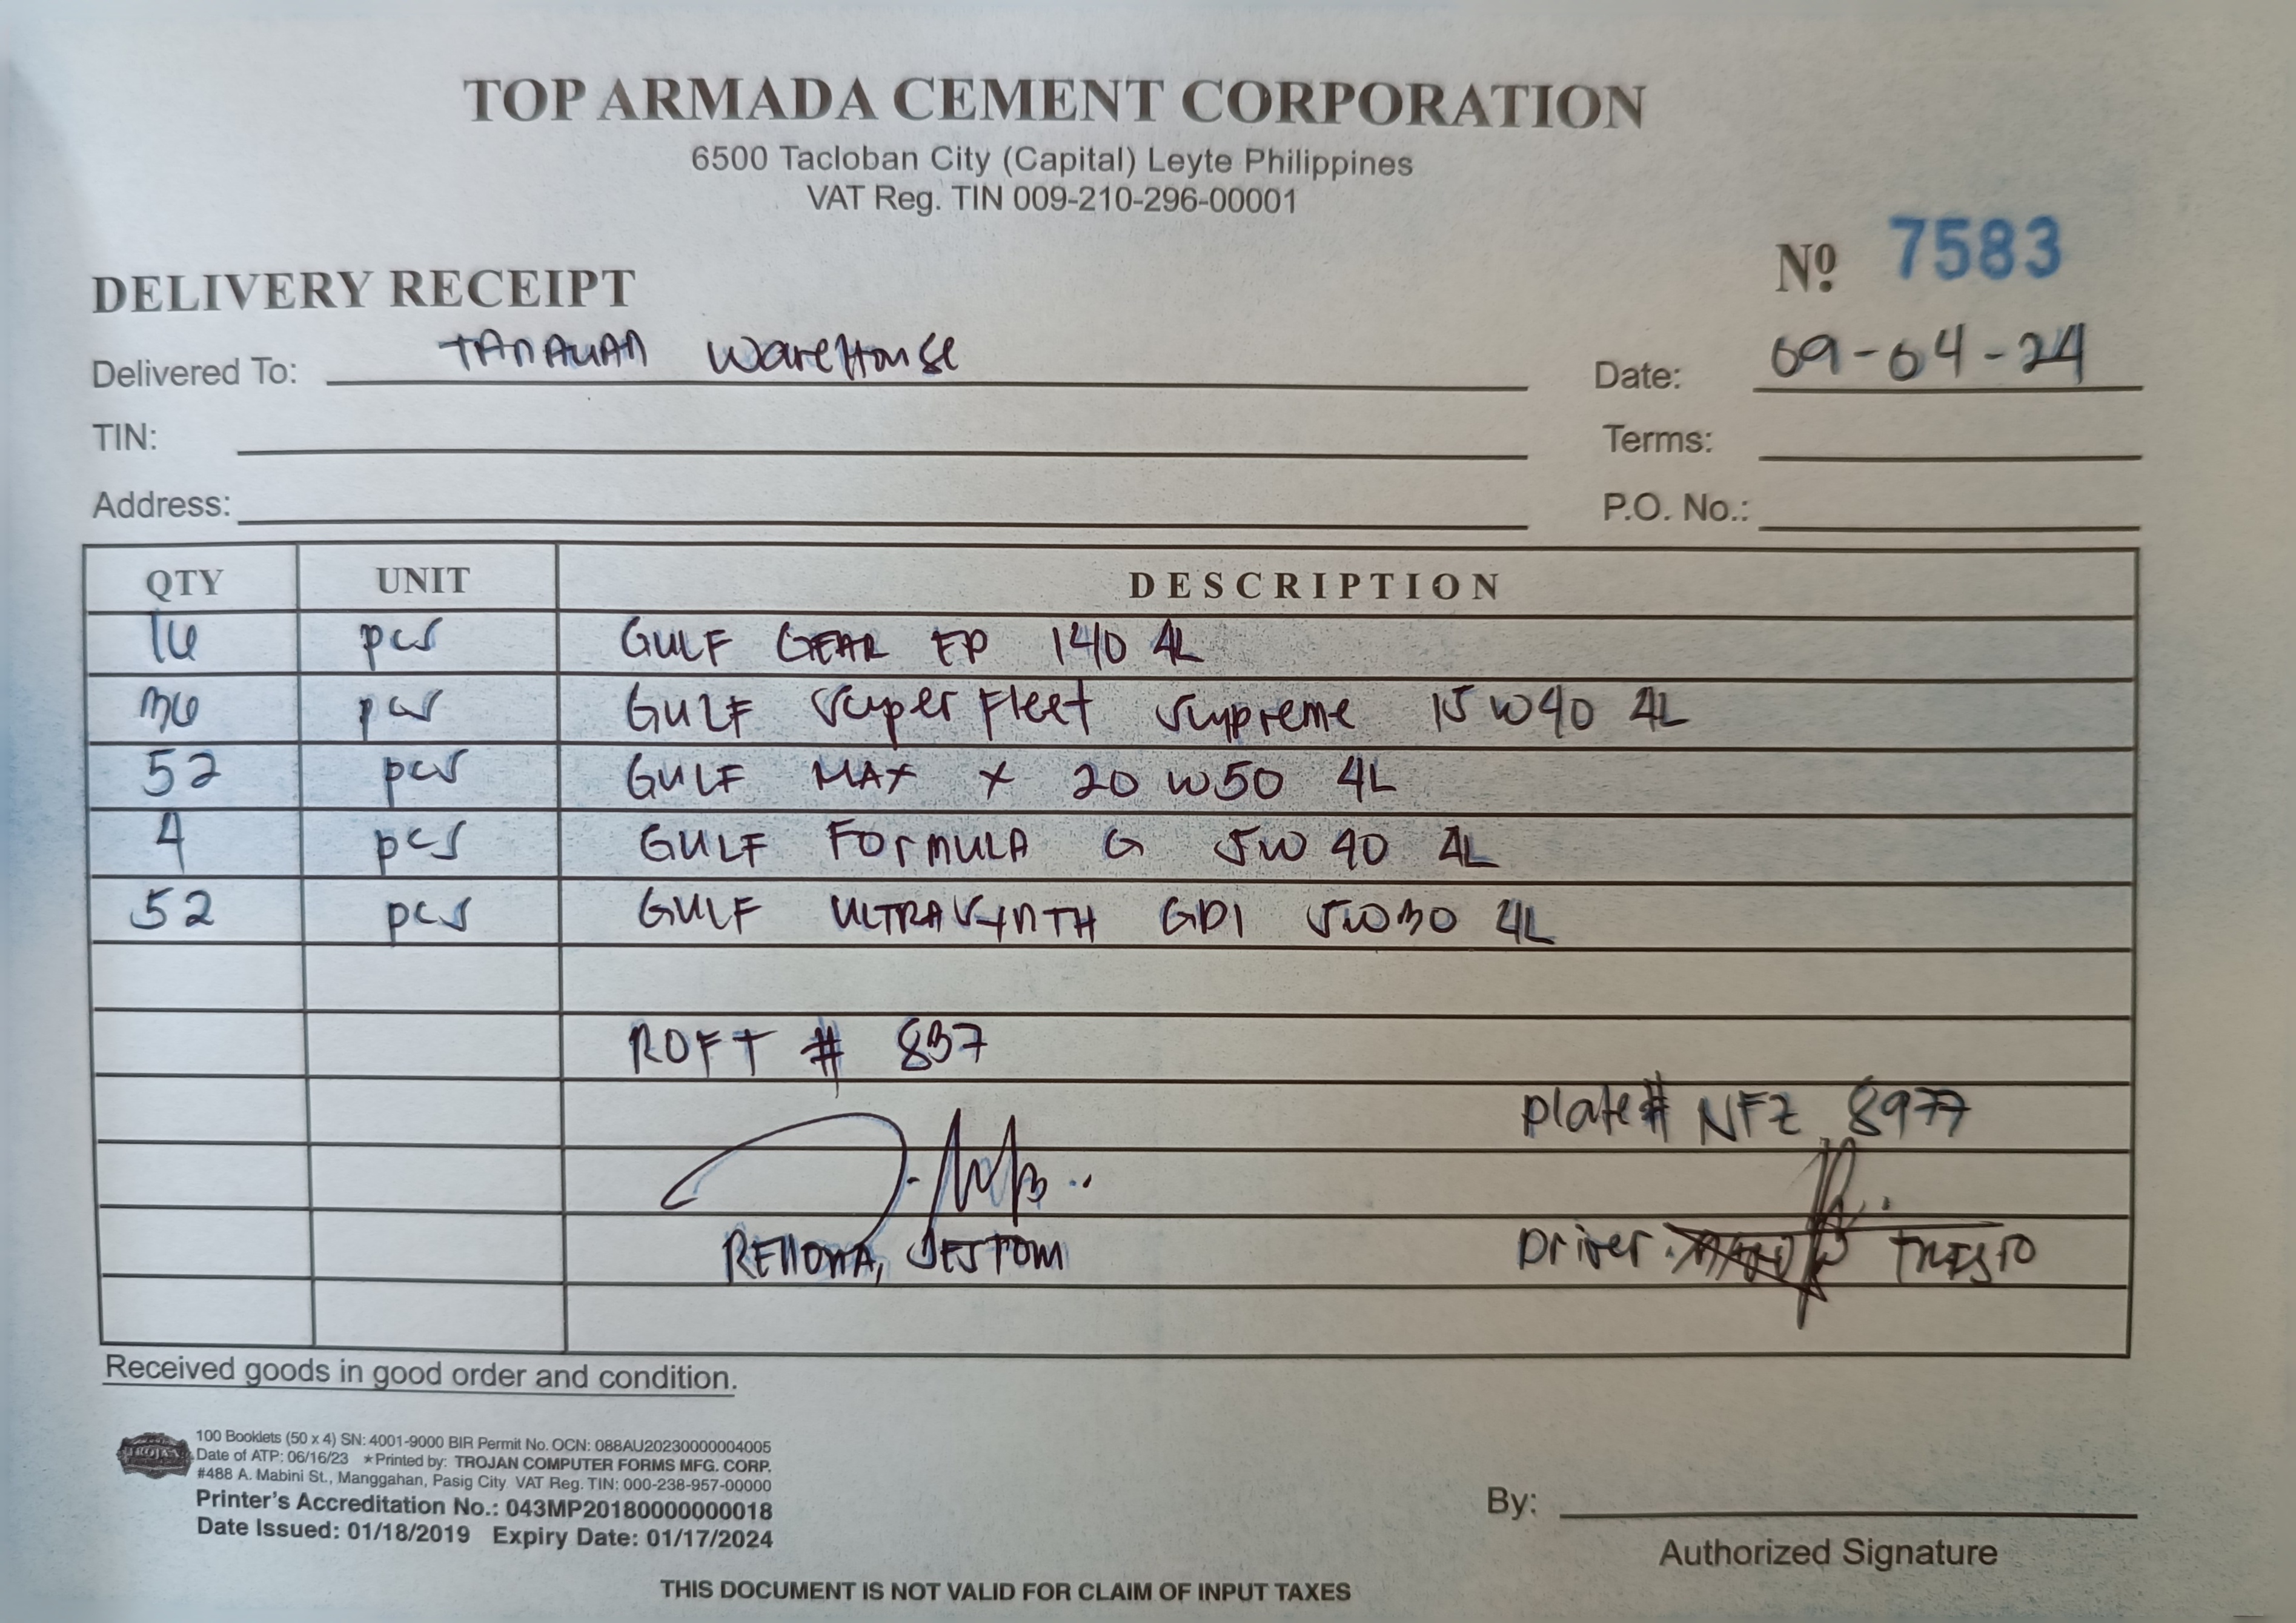 TOP ARMADA CEMENT CORPORATION
6500 Tacloban City (Capital) Leyte Philippines
VAT Reg. TIN 009-210-296-00001
DELIVERY RECEIPT
Nº 7583
Delivered To: TANAUAN WareHouse
Date: 09-04-24
TIN:
Terms:
Address:
P.O. No.:
QTY UNIT DESCRIPTION
16 pcs GULF GEAR EP 140 4L
36 pcs GULF Super Fleet Supreme 15W40 4L
52 pcs GULF MAX X 20W50 4L
4 pcs GULF FORMULA G 5W40 4L
52 pcs GULF ULTRASYNTH GDI 5W30 4L
ROFT # 837
Plate# NFZ 8977
RENONA, JESTOM
Driver.
Received goods in good order and condition.
TROJAN
100 Booklets (50 x 4) SN: 4001-9000 BIR Permit No. OCN: 088AU20230000004005
Date of ATP: 06/16/23 ★Printed by: TROJAN COMPUTER FORMS MFG. CORP.
#488 A. Mabini St., Manggahan, Pasig City VAT Reg. TIN: 000-238-957-00000
Printer's Accreditation No.: 043MP20180000000018
Date Issued: 01/18/2019 Expiry Date: 01/17/2024
By:
Authorized Signature
THIS DOCUMENT IS NOT VALID FOR CLAIM OF INPUT TAXES